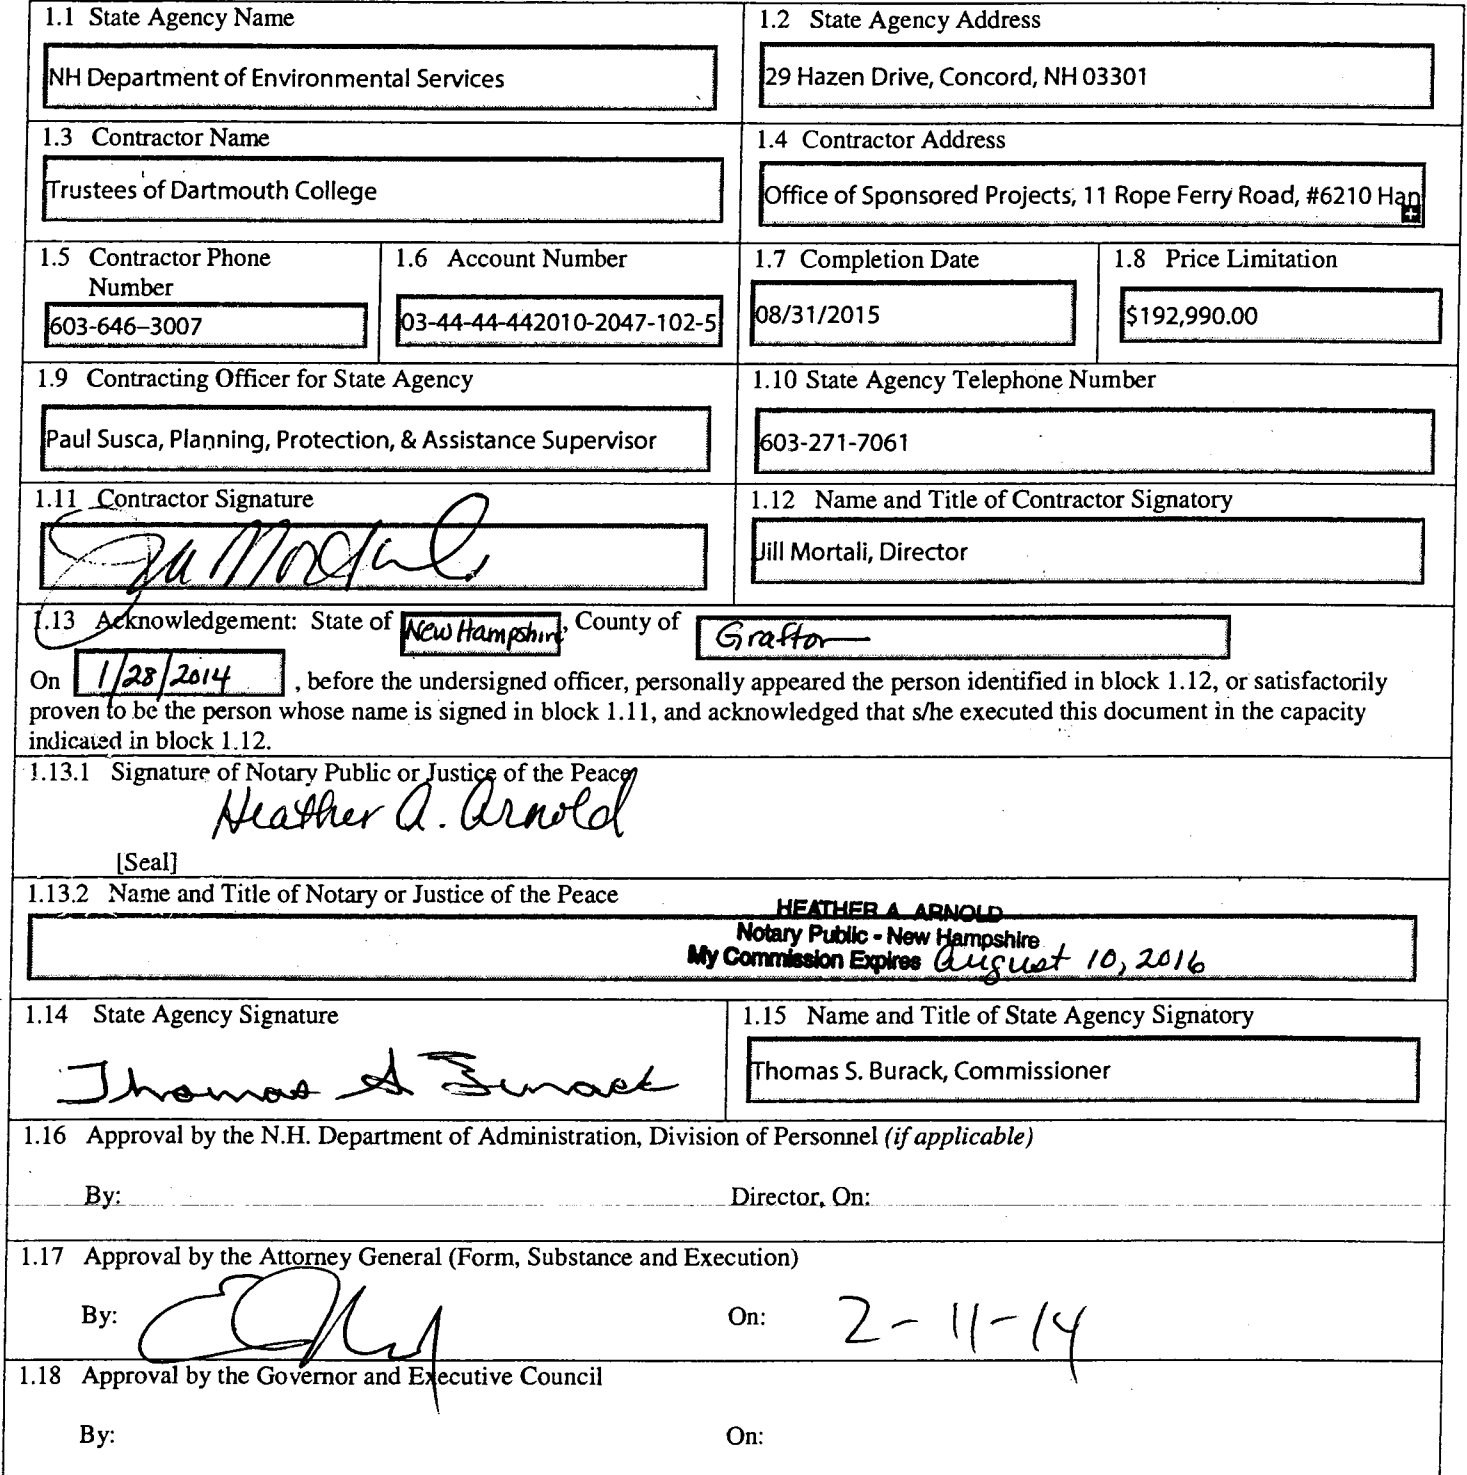 1.1 State Agency Name
NH Department of Environmental Services
1.2 State Agency Address
29 Hazen Drive, Concord, NH 03301
1.3 Contractor Name
Trustees of Dartmouth College
1.4 Contractor Address
Office of Sponsored Projects, 11 Rope Ferry Road, #6210 Han
1.5 Contractor Phone
Number
603-646-3007
1.6 Account Number
03-44-44-442010-2047-102-5
1.7 Completion Date
08/31/2015
1.8 Price Limitation
$192,990.00
1.9 Contracting Officer for State Agency
Paul Susca, Planning, Protection, & Assistance Supervisor
1.10 State Agency Telephone Number
603-271-7061
1.11 Contractor Signature
Jill Mortali
1.12 Name and Title of Contractor Signatory
Jill Mortali, Director
1.13 Acknowledgement: State of New Hampshire, County of Grafton
On 1/28/2014, before the undersigned officer, personally appeared the person identified in block 1.12, or satisfactorily
proven to be the person whose name is signed in block 1.11, and acknowledged that s/he executed this document in the capacity
indicated in block 1.12.
1.13.1 Signature of Notary Public or Justice of the Peace
Heather A. Arnold
[Seal]
1.13.2 Name and Title of Notary or Justice of the Peace
HEATHER A. ARNOLD
Notary Public - New Hampshire
My Commission Expires August 10, 2016
1.14 State Agency Signature
Thomas S Burack
1.15 Name and Title of State Agency Signatory
Thomas S. Burack, Commissioner
1.16 Approval by the N.H. Department of Administration, Division of Personnel (if applicable)
By: Director, On:
1.17 Approval by the Attorney General (Form, Substance and Execution)
By: On: 2-11-14
1.18 Approval by the Governor and Executive Council
By: On: